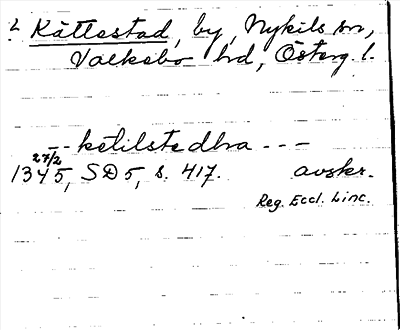 ? Kättestad, by, Nykils sn,
Valkebo hd, Österg. l.
-- ketilstedhra ---
27/2
1345, SD 5, s. 417. avskr.
Reg. Eccl. Linc.